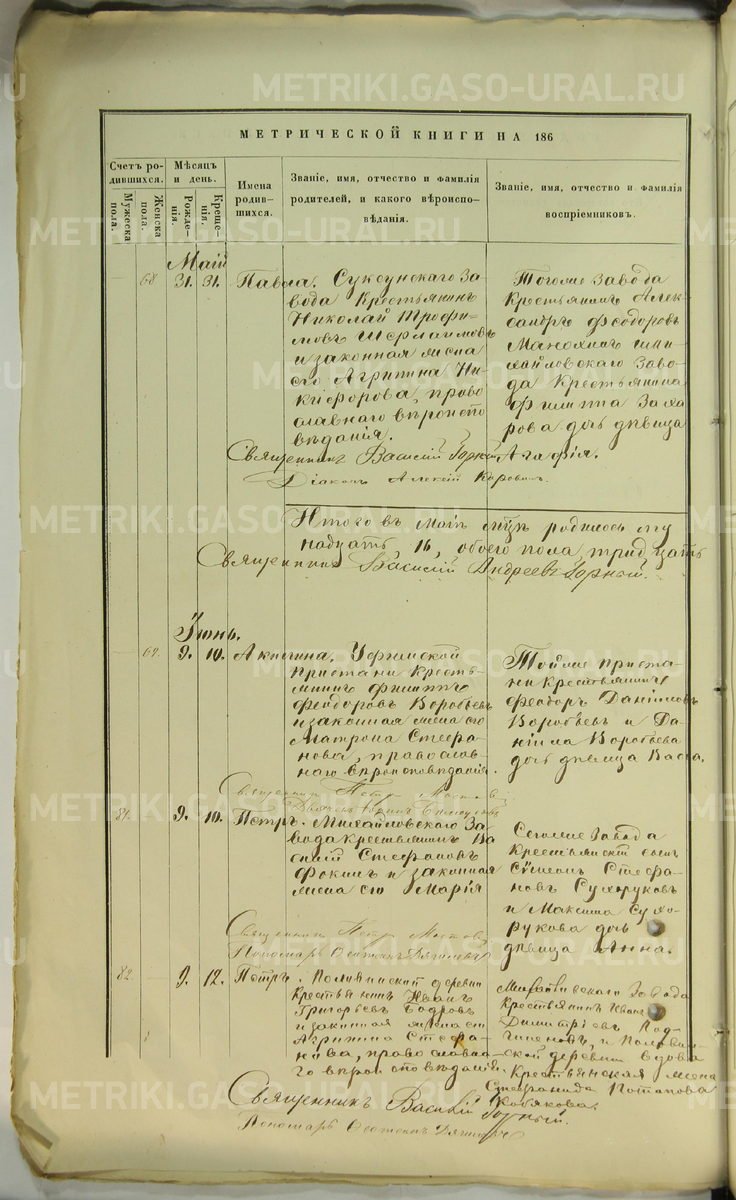 METRIKI.GASO-URAL.RU
МЕТРИЧЕСКОЙ КНИГИ НА 186
Счетъ ро-
дившихся.
Мужеска
пола.
Женска
пола.
Мѣсяцъ
и день.
Рожде-
нія.
Креще-
нія.
Имена
родив-
шихся.
Званіе, имя, отчество и фамилія
родителей, и какого вѣроиспо-
вѣданія.
Званіе, имя, отчество и фамилія
воспріемниковъ.
Маій
68 31. 31. Павла. Суксунскаго За
вода Крестьянинъ
Николай Трофи
мовъ
и законная жена
его Агрипина Ни
кифорова, право
славнаго вѣроиспо
вѣданія.
Тогоже Завода
Крестьянинъ Алек
сандръ Феодоровъ
Ми
хайловскаго Заво
да Крестьянина
Филиппа Заха
рова дочь дѣвица
Агафія.
Священникъ Василій Горный
Діаконъ Алексій
Итого въ Маіѣ м-цѣ родилось му
16, обоего пола тридцать
Священникъ Василій Андреевъ Горный.
Іюнь.
69. 9. 10. Акилина. Уфимской
пристани Кресть-
янинъ Филиппъ
Феодоровъ Воробьевъ
и законная жена его
Матрона Стефа
нова, православ-
наго вѣроисповѣданія.
Тойже приста-
ни крестьянинъ
Феодоръ Даніиловъ
Воробьевъ и Да-
ніила Воробьева
дочь дѣвица Васса.
Священникъ Петръ
81. 9. 10. Петръ. Михайловскаго За
вода крестьянинъ Ва
силій Стефановъ
Фокинъ и законная
жена его Марія
Сегоже Завода
Крестьянскій сынъ
Симеонъ Стефа
новъ Сухоруковъ
и Максима Сухо-
рукова дочь
дѣвица Анна.
Священникъ Петръ
Пономарь
82. 9. 12. Петръ. Половинской деревни
Крестьянинъ Иванъ
Григорьевъ Бодровъ
и законная жена его
Агрипина Стефа-
нова, православна
го вѣроисповѣданія.
Михайловскаго Завода
Крестьянинъ Иванъ
Димитріевъ
и Половин-
ской деревни вдова
Крестьянская жена
Стефанида Потапова
Священникъ Василій Горный.
Пономарь